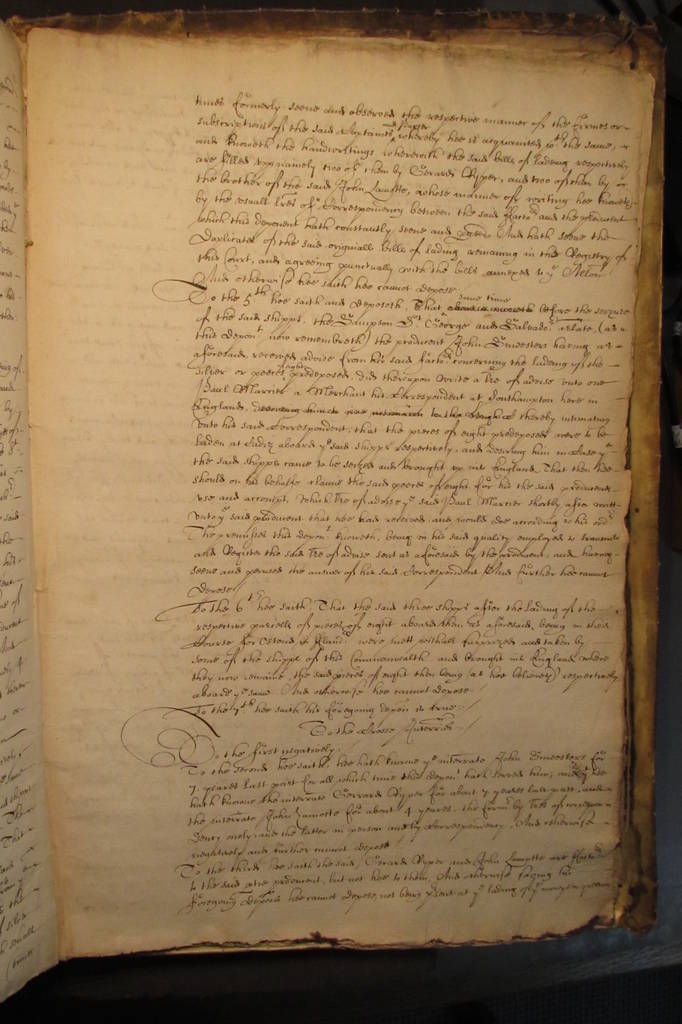 times formerly seene and observed the respective manner of the firmes or
subscriptions of the said Captaines whereby hee is acquainted wth the same,
and knoweth the handwritings wherewith the said bills of lading respectively
are filled upp namely two of them by Gerard Wyper, and two of them by
the brother of the said John Lamotte, whose manner of writing hee knoweth
by the usuall lres of Correspondency between the said factors and the producent
which this deponent hath constantly seene and And hath seene the
Duplicates of the said originall bills of lading remaning in the Registry of
this Court, and agreeing punctually with the bills annexed to ye Allon
And otherwise hee saith hee cannot depose
To the 5th hee saith and deposeth, That some time before the seizure
of the said shipps, the Sampson St George and Salvador arlate, (as
this depont now remembreth) the producent John Sweesters having as
aforesaid received advise from his said factors concerning the lading of the
silver or peeces of eight predeposed, did thereupon write a lre of advise unto one
Paul Marrier a Merchant his Correspondent at Southampton here in
England, thereby intimating
unto his said Correspondent, that the pieces of eight predeposed were to be
laden at Cadiz aboard ye said shipps respectively, and desiring him in case
the said shipps came to be seized and brought up into England That then hee
should on his behalfe claime the said peeces of eight for his the said producents
use and accompt, Which lre of advise ye said Paul Marrier shortly after
unto ye said producent that hee had received and would doe according to his order
The premisses this depont knoweth, being in his said quality employed to
and Register the said lre of advise sent as aforesaid by the producent, and having
seene and perused the answer of his said Correspondent And further hee cannot
depose
To the 6th hee saith, That the said three shipps after the lading of the
respective parcells of pieces of eight aboard them as aforesaid, being in their
Course for Ostend in Flandrs were mett withall surprized and taken by
some of the shipps of this Commonwealth and brought into England where
they now remaine, the said pieces of eight then being (as hee beleiveth) respectively
aboard ye same. And otherwise hee cannot depose
To the 7th hee saith his foregoing deposn is true.
To the Crosse Interries
To the first negatively.
To the second hee saith, hee hath knowne ye interrate John Sweesters for
7 yeares last past for all which time this depont hath served him, and hee
hath knowne the interrate Gerrard Wyper for about 7 yeares last past, and
the interrate John Lamotte for about 4 yeares, the former by lres of correspon
dency onely, and the latter in person and by Correspondency, And otherwise
negatively and further cannot depose
To the third hee saith the said Gerard Wyper and John Lamotte are factors
to the said producent, but not hee to them, And otherwise saving his
foregoing deposn hee cannot depose, not being psent at ye lading of ye